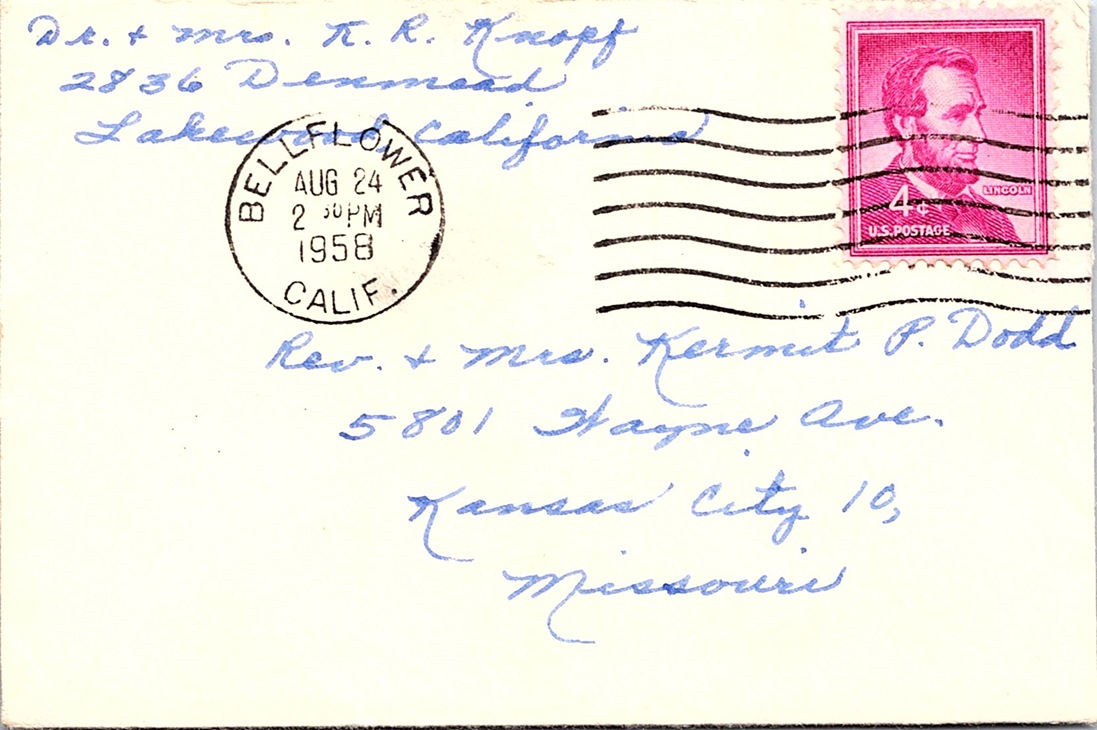 Dr. + Mrs. K. R. Knopf
2836 Denmead
Lakewood California
BELLFLOWER
AUG 24
2 30 PM
1958
CALIF.
LINCOLN
4¢
U.S. POSTAGE
Rev. + Mrs. Kermit P. Dodd
5801 Wayne Ave.
Kansas City 10,
Missouri